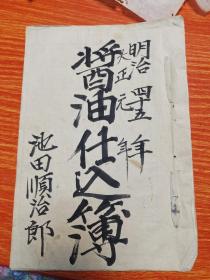 明治四十五年
大正元年
醤油仕込簿
池田順治郎